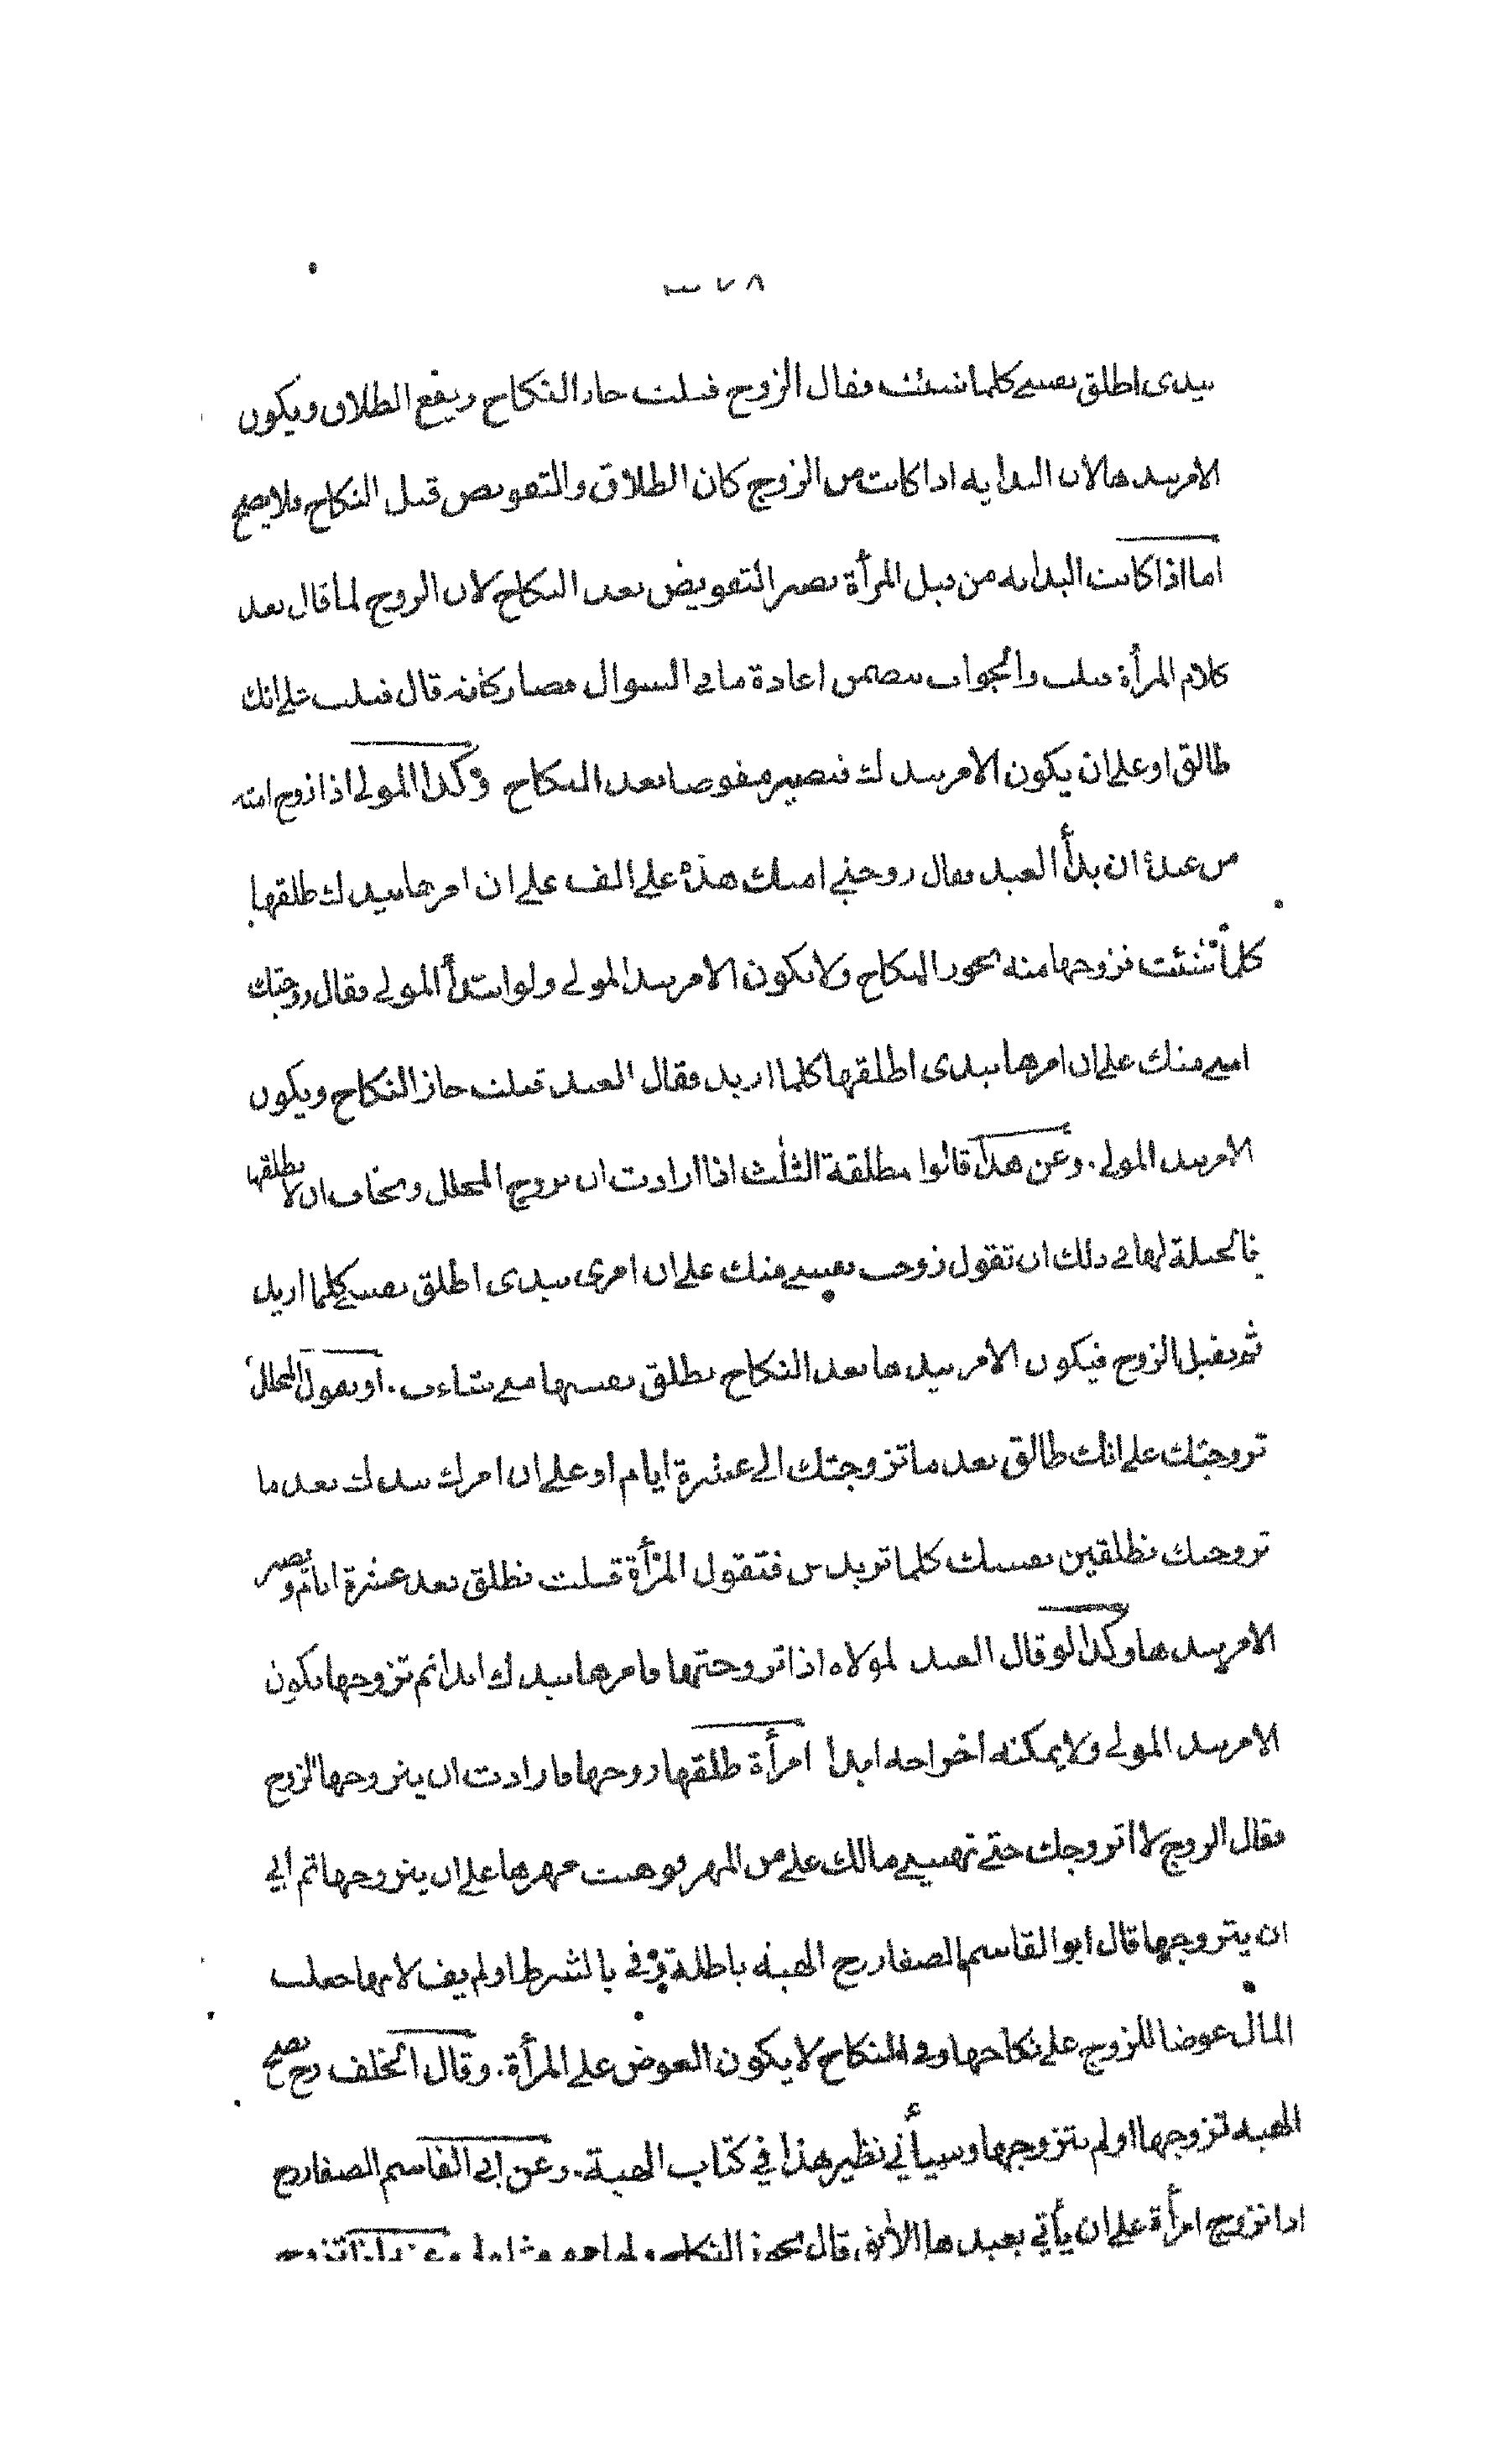 بيدى اطلق نفسي كلما شئت فقال الزوج قبلت جاز النكاح ويقع الطلاق ويكون
الامر بيدها لان البداية اذا كانت من الزوج كان الطلاق والتفويض قبل النكاح فلا يصح
اما اذا كانت البداية من قبل المرأة يصير التفويض بعد النكاح لان الزوج لما قال بعد
كلام المرأة قبلت والجواب يتضمن اعادة ما في السوال فصار كانه قال قبلت على انك
طالق او على ان يكون الامر بيدك فيصير مفوضا بعد النكاح وكذا المولى اذا زوج امته
من عبده ان بدأ العبد فقال زوجني امتك هذه على الف على ان امرها بيدك طلقها
كلما شئت فزوجها منه يجوز النكاح ولا يكون الامر بيد المولى ولو ابتدأ المولى فقال زوجتك
امتي منك على ان امرها بيدى اطلقها كلما اريد فقال العبد قبلت جاز النكاح ويكون
الامر بيد المولى. وعن هذا قالوا مطلقة الثلث اذا ارادت ان تزوج المحلل وتخاف ان لا يطلقها
فالحيلة لها في ذلك ان تقول زوجت نفسي منك على ان امرى بيدى اطلق نفسي كلما اريد
ثم يقبل الزوج فيكون الامر بيدها بعد النكاح تطلق نفسها متى شاءت. او يقول المحلل
تزوجتك على انك طالق بعد ما تزوجتك الى عشرة ايام او على ان امرك بيدك بعد ما
تزوجتك تطلقين نفسك كلما تريدين فتقول المرأة قبلت تطلق بعد عشرة ايام ويصير
الامر بيدها وكذا لو قال العبد لمولاه اذا تزوجتها فامرها بيدك ابدا ثم تزوجها يكون
الامر بيد المولى ولا يمكنه اخراجه ابدا امرأة طلقها زوجها فارادت ان يتزوجها الزوج
فقال الزوج لا اتزوجك حتى تهبيني مالك على من المهر فوهبت مهرها على ان يتزوجها ثم ابى
ان يتزوجها قال ابو القاسم الصفار رح الهبة باطلة وفى بالشرط او لم يف لانها جعلت
المال عوضا للزوج على نكاحها وفي النكاح لا يكون العوض على المرأة. وقال الخلف رح تصح
الهبة تزوجها او لم يتزوجها وسيأتي نظير هذا في كتاب الهبة. وعن ابي القاسم الصفار رح
اذا تزوج امرأة على ان يأتي بعبدها الابق قال يجوز النكاح ولها